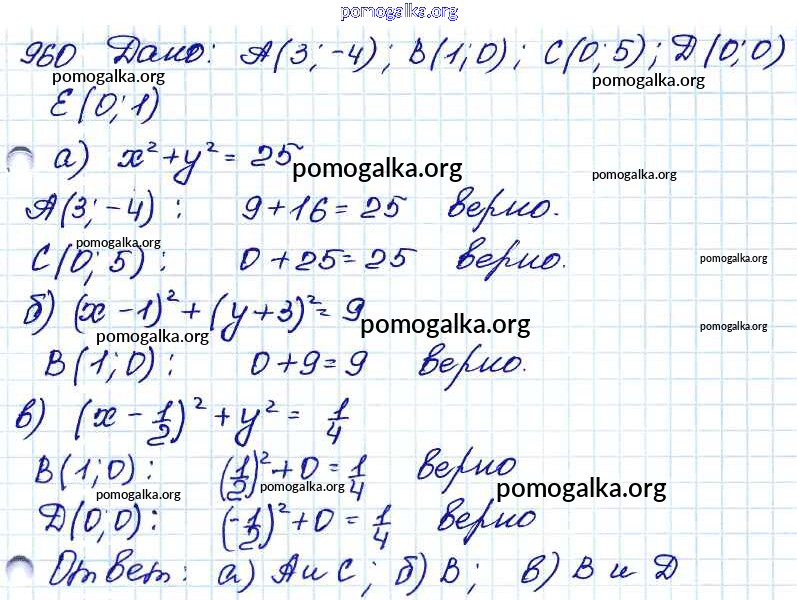 pomogalka.org
960 Дано: A(3;-4); B(1;0); C(0;5); D(0;0)
pomogalka.org pomogalka.org
E(0;1)
а) x² + y² = 25
pomogalka.org pomogalka.org
A(3;-4): 9+16=25 верно.
pomogalka.org
C(0;5): 0+25=25 верно.
pomogalka.org
б) (x-1)² + (y+3)² = 9
pomogalka.org pomogalka.org pomogalka.org
B(1;0): 0+9=9 верно.
в) (x - 1/2)² + y² = 1/4
B(1;0): (1/2)² + 0 = 1/4 верно
pomogalka.org pomogalka.org pomogalka.org
D(0;0): (-1/2)² + 0 = 1/4 верно
Ответ: а) A и C; б) B; в) B и D